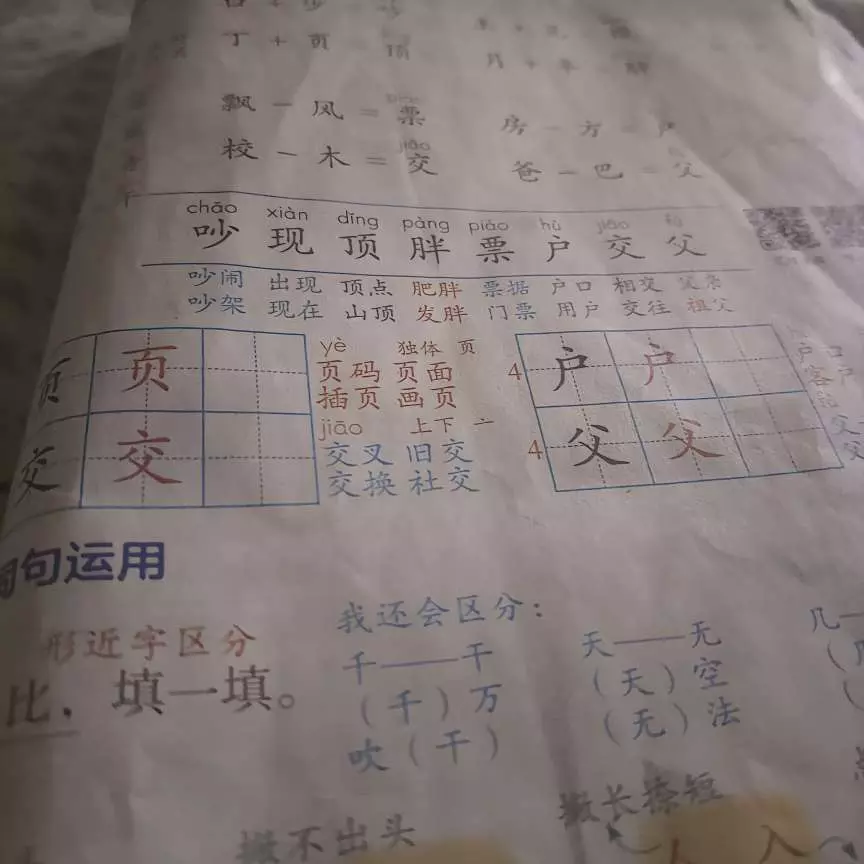 丁 + 页 = 顶
月 + 半 = 胖
飘 - 风 = 票
房 - 方 = 户
校 - 木 = 交
jiāo
爸 - 巴 = 父
chǎo xiàn dǐng pàng piào hù jiāo fù
吵 现 顶 胖 票 户 交 父
吵闹 出现 顶点 肥胖 票据 户口 相交 父亲
吵架 现在 山顶 发胖 门票 用户 交往 祖父
页 页
yè 独体 页
页码 页面
插页 画页
4 户 户
交 交
jiāo 上下 亠
交叉 旧交
交换 社交
4 父 父
词句运用
形近字区分
比,填一填。
我还会区分:
千——干
(千)万
吹(干)
天——无
(天)空
(无)法
几——
撇不出头
撇长捺短
入